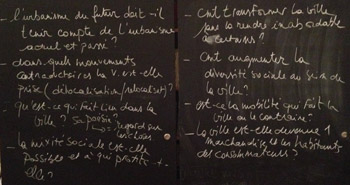 - l'urbanisme du futur doit-il
tenir compte de l'urbanisme
actuel et passé ?
- dans quels mouvements
contradictoires la V. est-elle
prise (délocalisation/relocalisat°)
- qu'est-ce qui fait lien dans la
ville ? sa poésie ?
↳ regard sur
les choses
- la mixité sociale est-elle
possible et à qui profite-t-
elle ?
- Cnt transformer la ville
sans la rendre inabordable
à certains ?
- Cnt augmenter la
diversité sociale au sein de
la ville ?
- est-ce la mobilité qui fait la
ville ou le contraire ?
- la ville est-elle devenue 1
marchandise et les habitants
des consommateurs ?